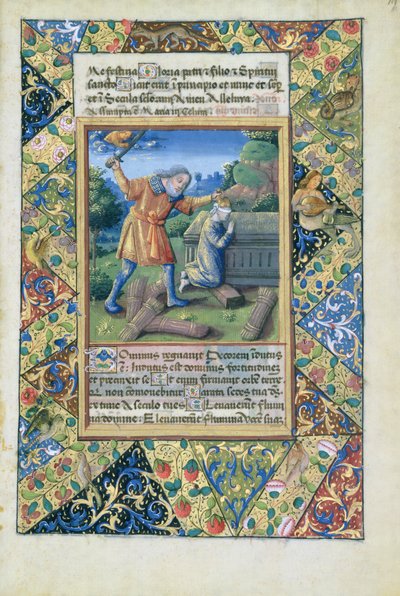 Me festina Gloria patri & filio & Spiritui
sancto Sicut erat i principio et nunc et sep
et i Secula seculorum Amen Alleluya
Assumpta e Maria in Celum
Dominus regnavit Decorem indutus
Indutus est dominus fortitudinez
et precinxit se Et enim firmavit orbe terre
non comovebitur Parata sedes tua
ex tunc A seculo tu es Elevaverut flumi
na domine Elevaverut flumina voce suaz